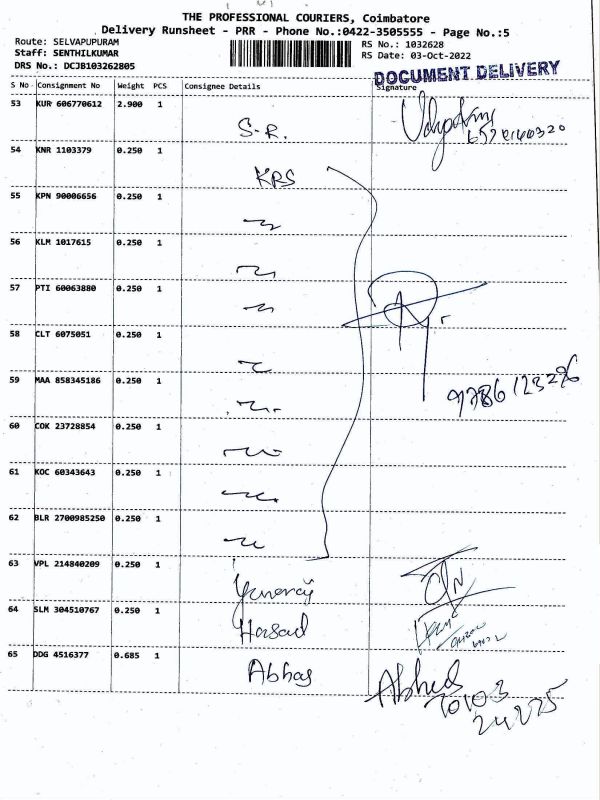 THE PROFESSIONAL COURIERS, Coimbatore
Delivery Runsheet - PRR - Phone No.:0422-3505555 - Page No.:5
Route: SELVAPUPURAM
Staff: SENTHILKUMAR
DRS No.: DCJB103262805
RS No.: 1032628
RS Date: 03-Oct-2022
DOCUMENT DELIVERY
S No Consignment No Weight PCS Consignee Details Signature
53 KUR 606770612 2.900 1 S-R.
54 KNR 1103379 0.250 1 KRS
55 KPN 90006656 0.250 1
56 KLM 1017615 0.250 1
57 PTI 60063880 0.250 1
58 CLT 6075051 0.250 1
59 MAA 858345186 0.250 1
9786123296
60 COK 23728854 0.250 1
61 KOC 60343643 0.250 1
62 BLR 2700985250 0.250 1
63 VPL 214840209 0.250 1 Yuvaraj
64 SLM 304510767 0.250 1
65 DDG 4516377 0.685 1 Abhas
70103
24275